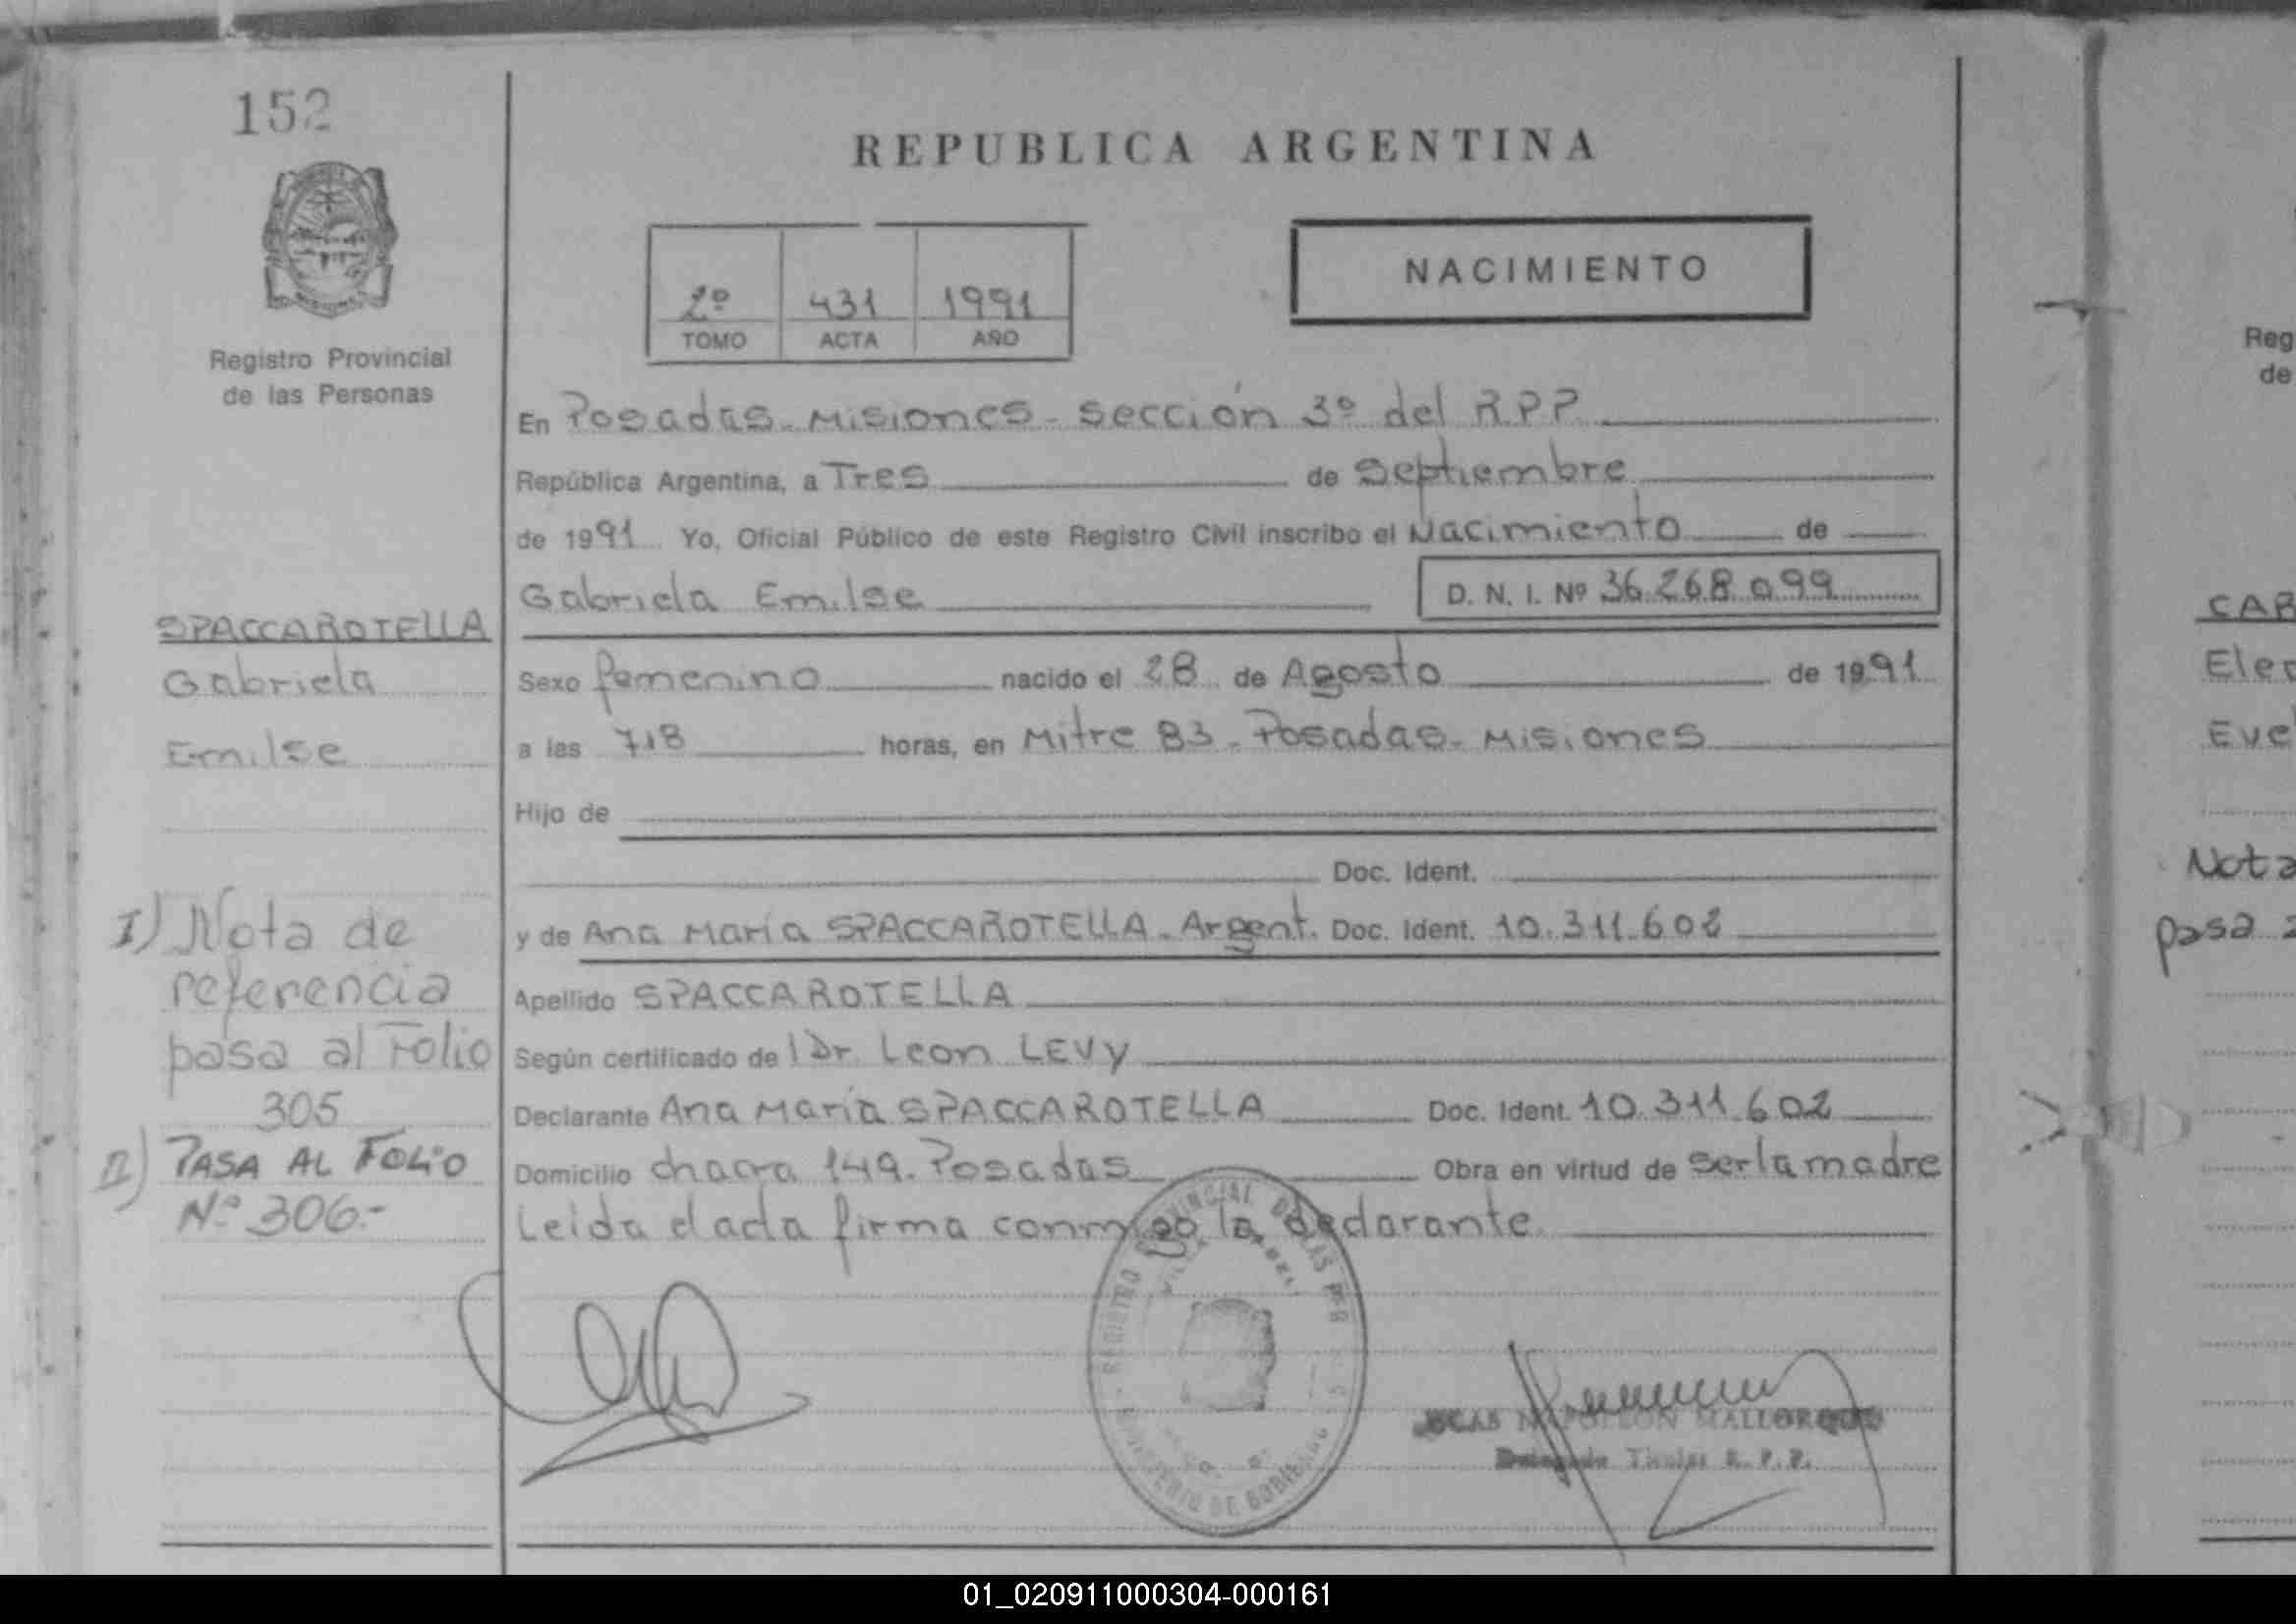 152
Registro Provincial
de las Personas
SPACCAROTELLA
Gabriela
Emilse
I) Nota de
referencia
pasa al Folio
305
II) PASA AL FOLIO
Nº 306.-
REPUBLICA ARGENTINA
2º 431 1991
TOMO ACTA AÑO
NACIMIENTO
En Posadas - Misiones - sección 3º del R.P.P.
República Argentina, a Tres de Septiembre
de 1991 Yo, Oficial Público de este Registro Civil inscribo el Nacimiento de
Gabriela Emilse D. N. I. Nº 36.268.099
Sexo femenino nacido el 28 de Agosto de 1991
a las 7,18 horas, en Mitre 83 - Posadas - Misiones
Hijo de
Doc. Ident.
y de Ana María SPACCAROTELLA - Argent. Doc. Ident. 10.311.602
Apellido SPACCAROTELLA
Según certificado de l Dr Leon LEVY
Declarante Ana María SPACCAROTELLA Doc. Ident. 10.311.602
Domicilio chacra 149 - Posadas Obra en virtud de ser la madre
Leida el acta firma conmigo la declarante
REGISTRO PROVINCIAL DE LAS PER
MINISTERIO DE GOBIERNO
NAPOLEON MALLORQUIN
Delegado Titular R. P. P.
Reg
de
CAB
Elec
Eve
Nota
pasa a
01_020911000304-000161